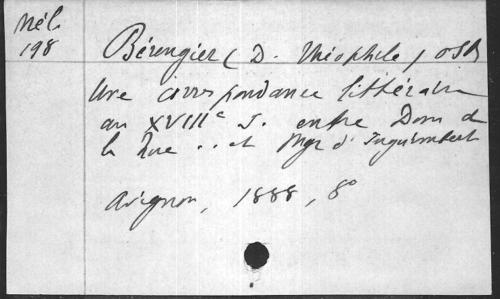 Mél.
198
Bérengier (D. Théophile) OSB
Une correspondance littéraire
au XVIIIe s. entre Dom de
la Rue .. et Mgr d'Inguimbert
Avignon, 1888, 8°